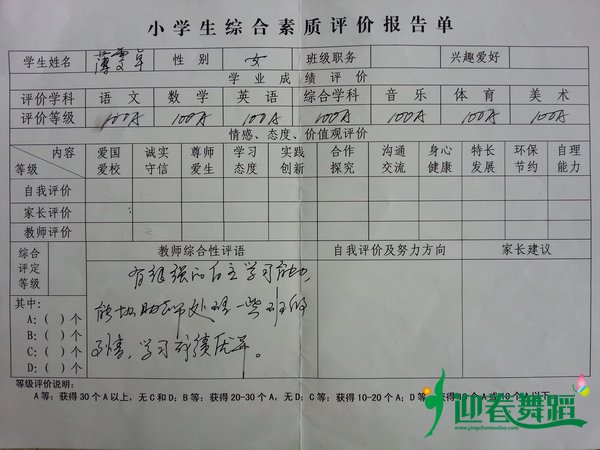 小学生综合素质评价报告单
学生姓名 薄雯卓 性别 女 班级职务 兴趣爱好
学业成绩评价
评价学科 语文 数学 英语 综合学科 音乐 体育 美术
评价等级 100A 100A 100A 100A 100A 100A 100A
情感、态度、价值观评价
内容 等级 爱国爱校 诚实守信 尊师爱生 学习态度 实践创新 合作探究 沟通交流 身心健康 特长发展 环保节约 自理能力
自我评价
家长评价
教师评价
综合评定等级 教师综合性评语 自我评价及努力方向 家长建议
有很强的自主学习能力,
能协助老师处理一些班的
事情,学习成绩优异。
其中:
A:( )个
B:( )个
C:( )个
D:( )个
等级评价说明:
A等:获得30个A以上,无C和D;B等:获得20-30个A,无D;C等:获得10-20个A;D等:获得10个A或10个A以下
迎春舞蹈
www.yingchunwudao.com